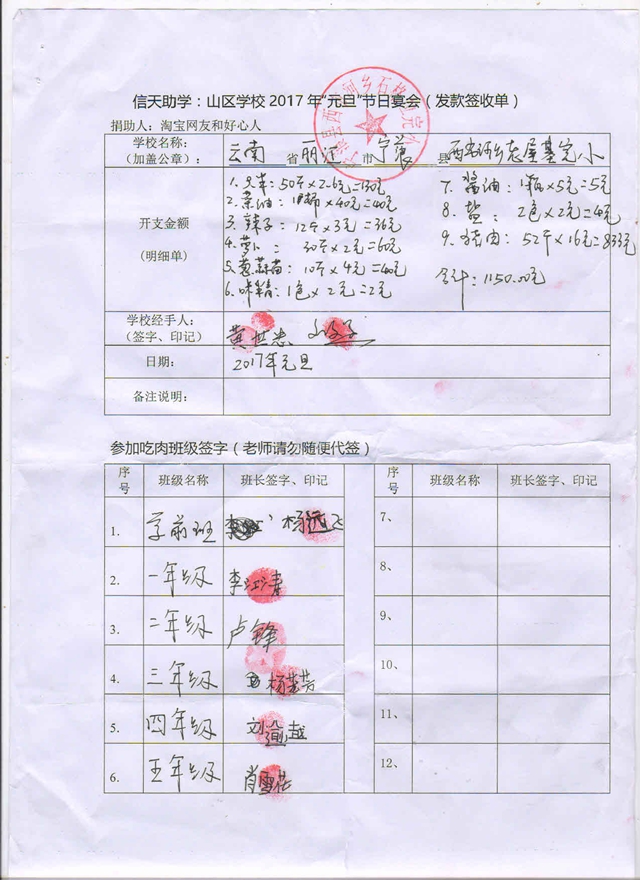 信天助学：山区学校2017年“元旦”节日宴会（发款签收单）
捐助人：淘宝网友和好心人
学校名称：
（加盖公章）：
云南 省 丽江 市 宁蒗 县 西 河乡 基完小
开支金额
（明细单）
1. 50斤×2.6元=130元
2. 菜油： ×40元=40元
3. 辣子：12斤×3元=36元
4. 萝卜：30斤×2元=60元
5. 葱蒜苗：10斤×4元=40元
6. 味精：1包×2元=2元
7. 酱油：1瓶×5元=5元
8. 盐：2包×2元=4元
9. 猪肉：52斤×16元=833元
合计：1150.00元
学校经手人：
（签字、印记）
黄世忠
日期：
2017年元旦
备注说明：
参加吃肉班级签字（老师请勿随便代签）
序号 班级名称 班长签字、印记 序号 班级名称 班长签字、印记
1. 学前班 杨远飞 7、
2. 一年级 李江涛 8、
3. 二年级 卢锋 9、
4. 三年级 杨芳 10、
5. 四年级 刘 越 11、
6. 五年级 肖雪花 12、